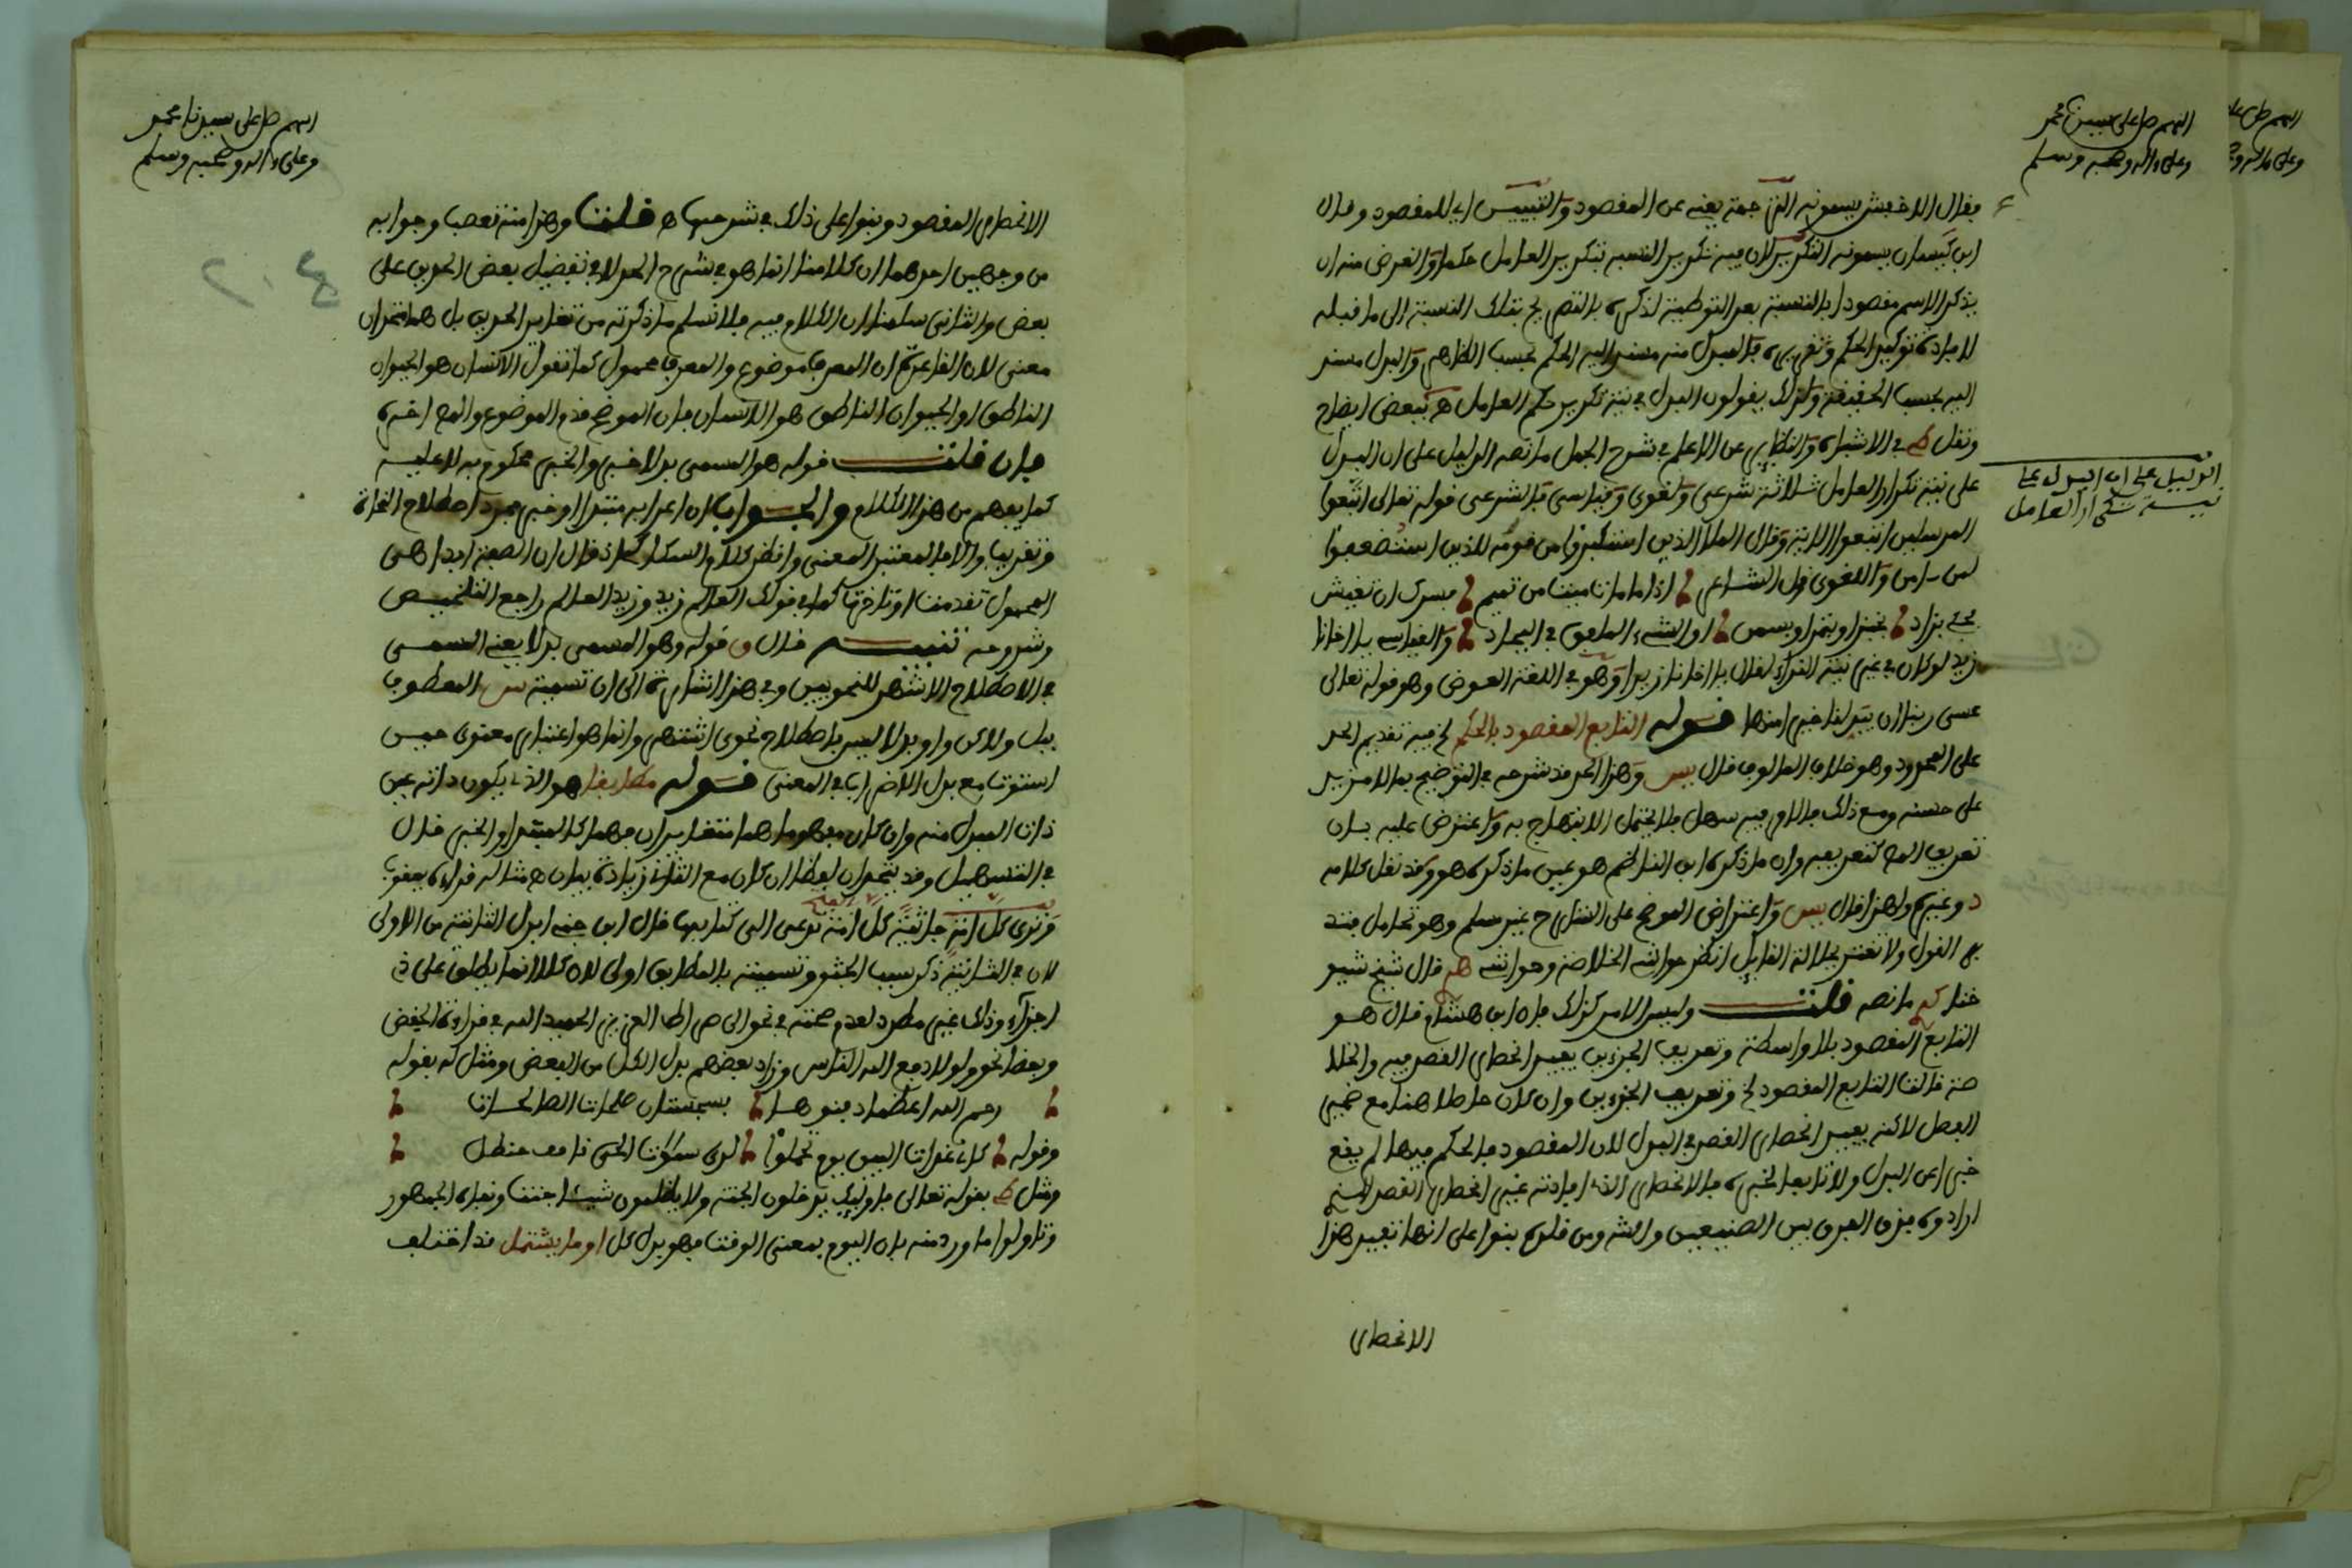 اللهم صل على سيدنا محمد
وعلى ءاله وصحبه وسلم
فقال الاخفش يسمونه الترجمة يعني عن المقصود والتبيين اي للمقصود وقال
ابن كيسان يسمونه التكرير لان فيه تكرير النسبة بتكرير العامل حكما والغرض منه ان
يذكر الاسم مقصودا بالنسبة بعد التوطئة لذكره بالتصريح بتلك النسبة الى ما قبله
لافادة توكيد الحكم وتقريره فالمبدل منه مسند اليه الحكم بحسب الظاهر والبدل مسند
اليه بحسب الحقيقة ولذلك يقولون البدل في نية تكرير حكم العامل ه ببعض ايضاح
ونقل في الاشباه والنظاير عن الاعلم في شرح الجمل ما نصه الدليل على ان البدل
على نية تكرار العامل ثلاثة شرعي ولغوي وقياسي فالشرعي قوله تعالى اتبعوا
المرسلين اتبعوا الاية وقال الملأ الذين استكبروا من قومه للذين استضعفوا
لمن ءامن واللغوي قول الشاعر اذا ما مات ميت من تميم فسرك ان تعيش
فجئ بزاد بخبز او بتمر او بسمن او الشيء الملفف في البجاد والقياسي يا اخانا
زيد لو كان في غير نية النداء لقال يا اخانا زيدا وهو في اللغة العوض وهو قوله تعالى
عسى ربنا ان يبدلنا خيرا منها قوله التابع المقصود بالحكم الخ فيه تقديم الحد
على المحدود وهو خلاف المالوف قال يس وهذا الحد قد شرحه في التوضيح بما لا مزيد
على حسنه ومع ذلك فالامر فيه سهل فلا يحتمل الابتهاج به واعترض عليه بان
تعريف المص كتعريفه وان ما ذكره ابن الناظم هو عين ما ذكره هو وقد نقل كلامه
د وغيره ولهذا قال يس واعتراض الموضح على الشارح غير مسلم وهو تحامل فتد
بر القول ولا تغتر بجلالة القايل انظر حواشي الخلاصة وحواشيه هـ قال شيخ شيو
خنا ما نصه قلت وليس الامر كذلك فان ابن هشام قال هو
التابع المقصود بلا واسطة وتعريف الجزءين يفيد انحصار القصد فيه والخلا
صة قالت التابع المقصود الخ وتعريف الجزءين وان كان حاصلا هنا مع ضمير
الفصل لاكنه يفيد انحصار القصد في البدل لان المقصود بالحكم فيها لم يقع
خبرا عن البدل ولا تابعا لخبره فالانحصار الذي افادته غير انحصار القصد
ارادوه فبذا الفرق بين الصنيعين والش ومن قلده بنوا على انها تفيد هذا
الانحصار
الدليل على ان البدل على
نية تكرار العامل
اللهم صل على سيدنا محمد
وعلى ءاله وصحبه وسلم
الانحصار المقصود وبنوا على ذلك في شرحها ه قلت وهذا منه تعصب وجوابه
من وجهين احدهما ان كلامنا انما هو في شرح الحد لا في تفضيل بعض الحدين على
بعض والثاني سلمنا ان الكلام فيه فلا نسلم ما ذكرته من تغاير الحدين بل هما متحدان
معنى لان القاعدة ان المعرف موضوع والمعرف محمول كما تقول الانسان هو الحيوان
الناطق او الحيوان الناطق هو الانسان فان الموضح قدم الموضوع والمص اخره
فان قلت قوله هو المسمى بدلا خبر والخبر محكوم به لا عليه
كما يفهم من هذا الكلام والجواب ان اعرابه مبتدا او خبر مجرد اصطلاح النحاة
وتقريب والا فالمعتبر المعنى وانظر كلام السكاكي اذ قال ان الصفة ابدا هي
المحمول تقدمت او تاخرت كما في قولك العالم زيد وزيد العالم راجع التلخيص
وشروحه تنبيه قال ق قوله وهو المسمى بدلا يعني المسمى
في الاصطلاح الاشهر للنحويين وفي هذا اشارة الى ان تسمية س المعطوف
ببل ولاكن واو بدلا ليس باصطلاح نحوي اشتهر وانما هو اعتبار معنوي حيث
استوت مع بدل الاضراب في المعنى قوله مطابقا هو الذي يكون ذاته عين
ذات المبدل منه وان كان مفهوماهما متغايران فهما كالمبتدا والخبر قال
في التسهيل وقد يتحدان لفظا ان كان مع الثاني زيادة بيان ه مثاله قراءة يعقوب
وترى كل امة جاثية كل امة تدعى الى كتابها قال ابن جني ابدل الثانية من الاولى
لان في الثانية ذكر سبب الجثو وتسميته بالمطابق اولى لان كلا انما يطلق على ذي
اجزاء وذلك غير مطرد لعدم صحته في نحو الى صراط العزيز الحميد الله في قراءة الخفض
وبعضا نحو ولولا دفع الله الناس وزاد بعضهم بدل الكل من البعض ومثل له بقوله
رحم الله اعظما دفنوها بسجستان طلحة الطلحات
وقوله كاني غداة البين يوم تحملوا لدى سمرات الحي ناقف حنظل
ومثل بقوله تعالى فاوليك يدخلون الجنة ولا يظلمون شيئا جنت ونفاه الجمهور
وتاولوا ما ورد منه بان اليوم بمعنى الوقت فهو بدل كل او ما يشتمل قد اختلف